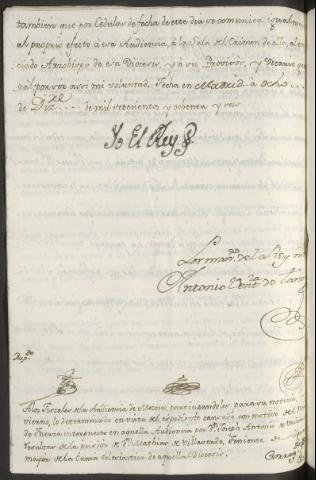 tambien que por Cedulas de fecha de este dia se comunica igualmen
al propio efecto a esa Audiencia, à la Sala del Crimen de ella, al en
ciado Arzobispo de esa Diocesis, y à su Provisor, y Vicario ge
ral por ser asi mi voluntad. Fecha en Madrid à ocho
de Diz.re de mil setecientos y ochenta y seis
Yo El Rey
Por man.do de el Rey
Antonio Vent.ra de Taran
Dup.do
A los Fiscales de la Audiencia de Mexico, participandoles para su noticia
lo determinado en vista del expediente causado con motivo del
de Fuerza interpuesto en aquella Audiencia por D.n Joseph Antonio de
de la prision de D.n Mathias de Villaverde, Teniente de Algua
mayor de la Curia Eclesiastica de aquella Diocesis.